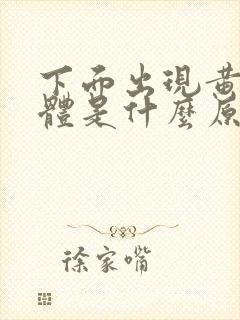 下而出現黃
體是什麼原
徐家嘴